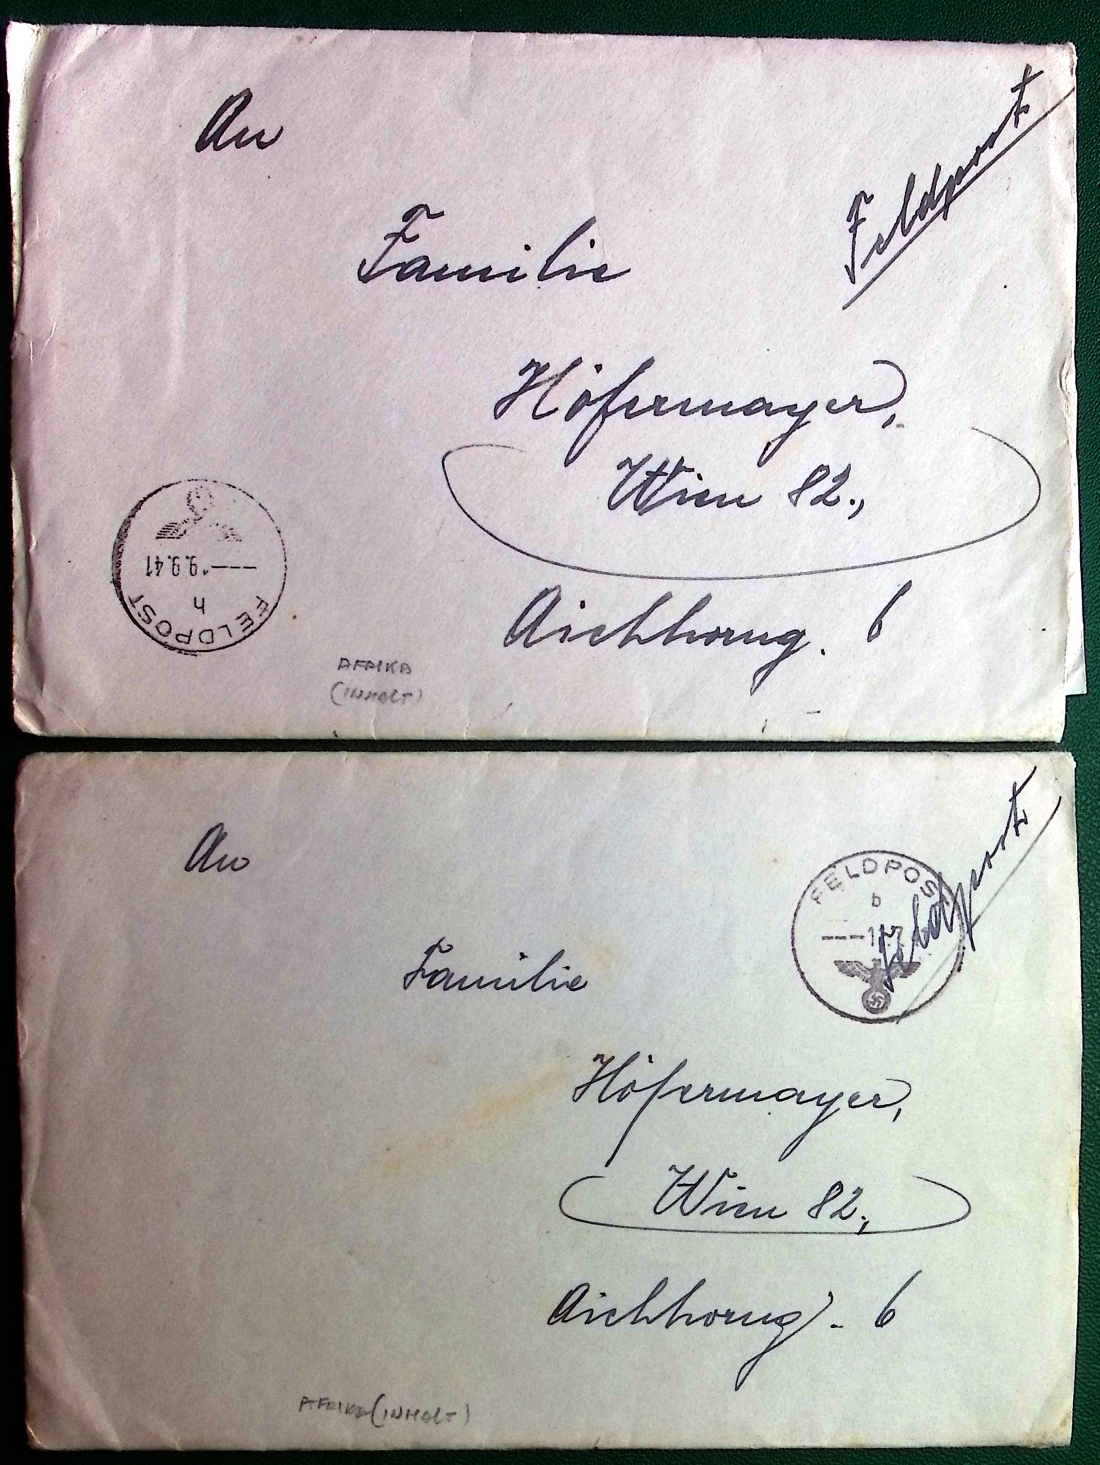 An
Feldpost
Familie
Höfermayer,
Wien 82.,
Aichhorng. 6
9.9.41
h
FELDPOST
AFRIKA
(INHALT)
An
FELDPOST
b
Feldpost
Familie
Höfermayer,
Wien 82.,
Aichhorng. 6
AFRIKA (INHALT)